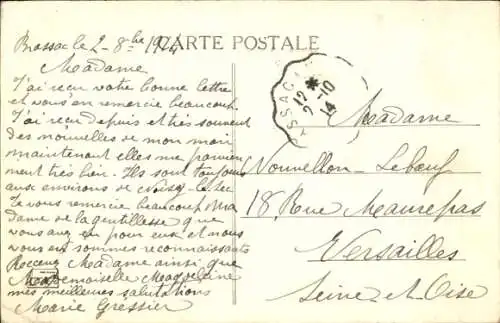 CARTE POSTALE
Brassac le 2-8bre 1914
Madame
J'ai reçu votre bonne lettre
et vous en remercie beaucoup
J'ai reçu depuis et très souvent
des nouvelles de mon mari
maintenant elles me parvien
nent très bien. Ils sont toujours
aux environs de Noisy-le-Sec
Je vous remercie beaucoup Ma
dame de la gentillesse que
vous avez eu pour eux et nous
vous en sommes reconnaissants
Recevez Madame ainsi que
Mademoiselle Magdeleine
mes meilleures salutations
Marie Gressier
BRASSAC
12
2-10
14
Madame
Nouvellon-Lebœuf
18, Rue Maurepas
Versailles
Seine-et-Oise